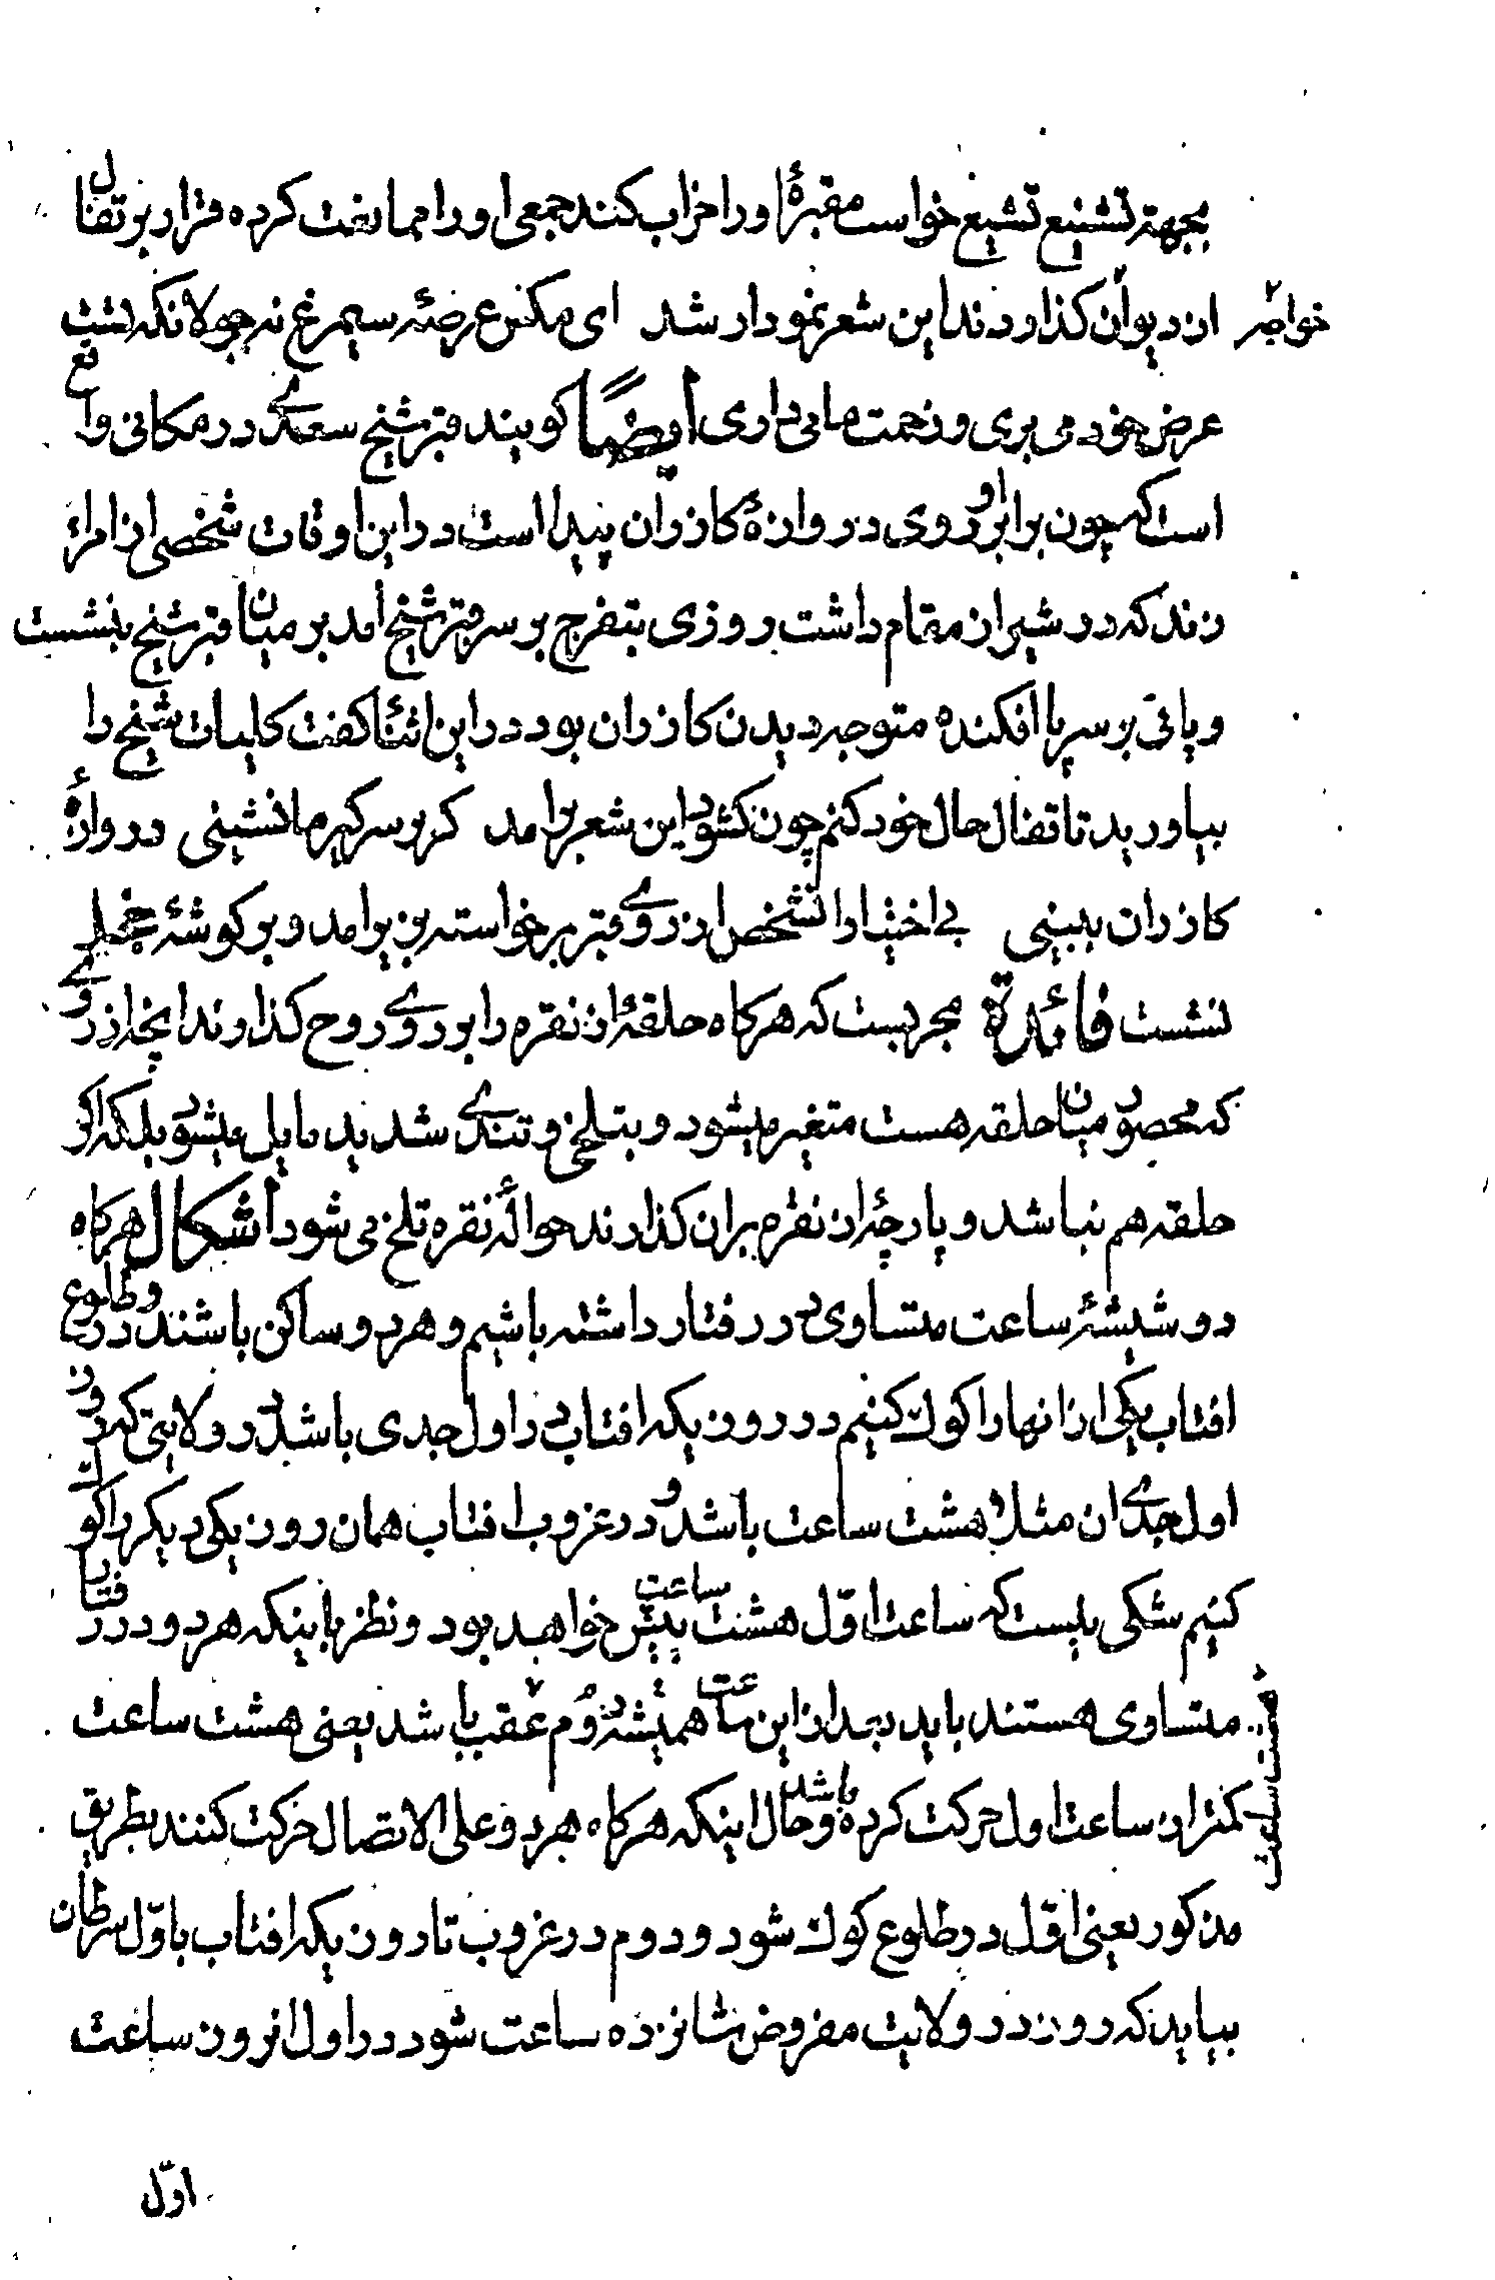 بجهة تشنیع تشیع خواست مقبرهٔ او را خراب کند جمعی او را ممانعت کرده قرار بر تفال
از دیوان کذاردند این شعر نمودار شد ای مکس عرصهٔ سیمرغ نه جولانکه تست
خواجه
عرض خود می بری و زحمت ما می داری ایضاً کویند قبر شیخ سعدی در مکانی واقع
است که چون برابر او روی دروازهٔ کازران پیدا است در این اوقات شخصی از امراء
زند که در شیراز مقام داشت روزی بتفرج بر سر قبر شیخ آمد بر میان قبر شیخ بنشست
و پائی بر سر پا افکنده متوجه دیدن کازران بود در این اثنا کفت کلیات شیخ را
بیاورید تا تفال حال خود کنم چون کشود این شعر برآمد که بر سر کبر ما نشینی دروازهٔ
کازران ببینی بی اختیار انشخص از روی قبر برخواسته بزیر آمد و بر کوشهٔ خجل
نشست فائدة مجربست که هرکاه حلقهٔ از نقره را بر روی روح کذارند انچه از روی
که محصور میان حلقه هست متغیر میشود و بتلخی و تندی شدید مایل میشود بلکه اکر
حلقه هم نباشد و پارچهٔ از نقره بر آن کذارند حوالهٔ نقره تلخ می شود اشکال هرکاه
دو شیشهٔ ساعت متساوی در رفتار داشته باشیم و هر دو ساکن باشند و در طلوع
افتاب یکی از انها را کوك کنیم در روزیکه افتاب در اول جدی باشد در ولایتی که روز
اول جدی ان مثلا هشت ساعت باشد و در غروب افتاب همان روز یکی دیکر را کوك
کنیم شکی نیست که ساعت اوّل هشت ساعت پیش خواهد بود و نظر باینکه هر دو در رفتار
متساوی هستند باید بعد از این ساعت همیشه دوم عقب باشد یعنی هشت ساعت
هشت ساعت
کمتر از ساعت اول حرکت کرده باشد و حال اینکه هرکاه هر دو علی الاتصال حرکت کنند بطریق
مذکور یعنی اوّل در طلوع کوك شود و دوم در غروب تا روزیکه افتاب باوّل سرطان
بیاید که روز در ولایت مفروض شانزده ساعت شود در اول انروز ساعت
اوّل